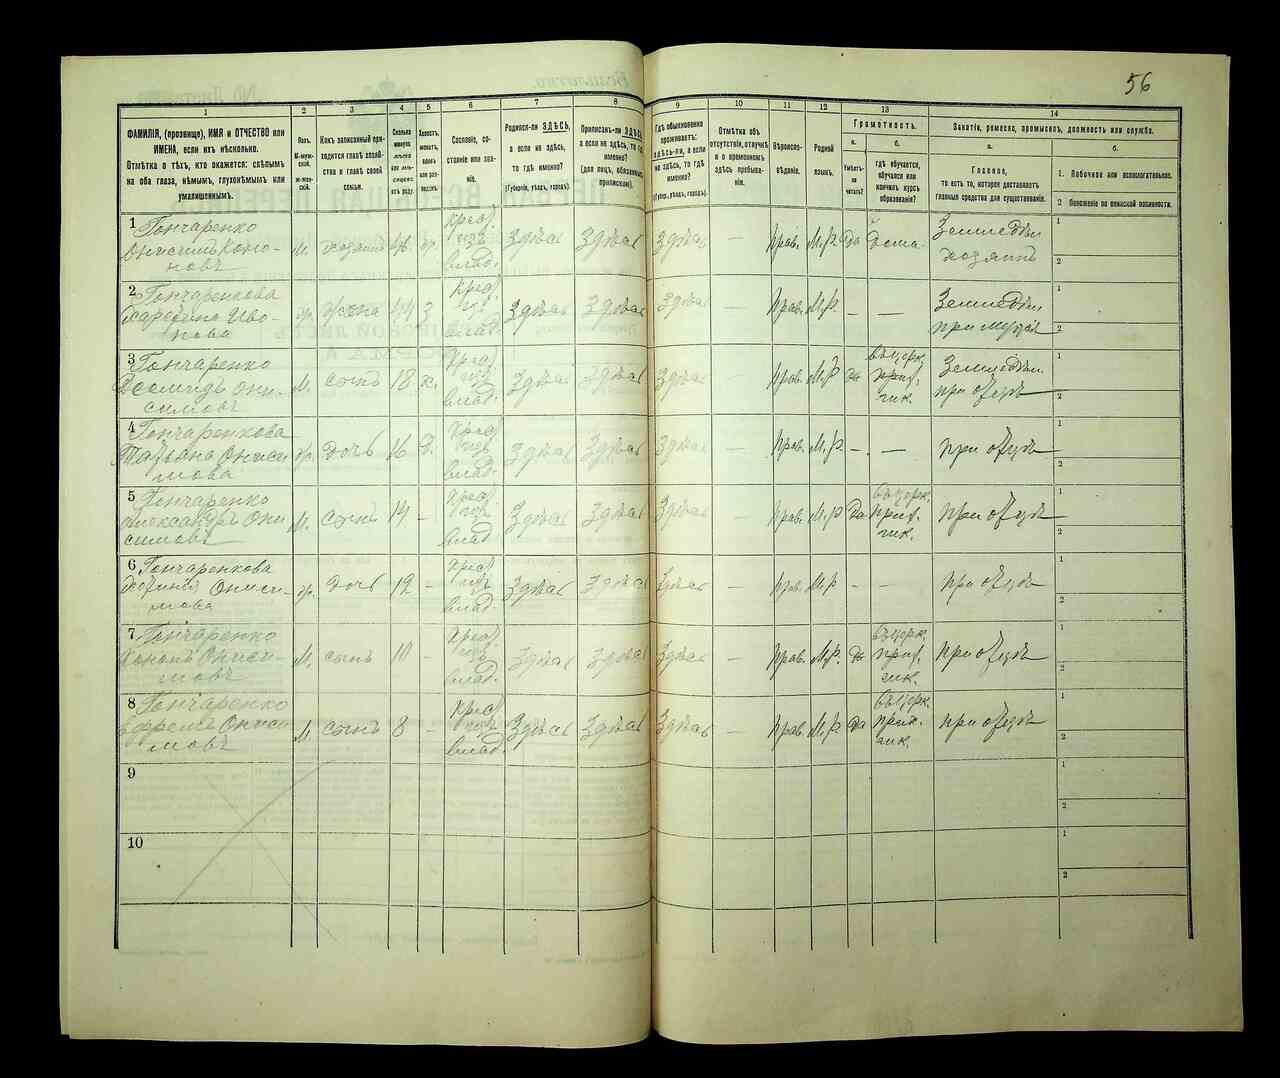 56
1
2
3
4
5
6
7
8
9
10
11
12
13
14
ФАМИЛІЯ, (прозвище), ИМЯ и ОТЧЕСТВО или
ИМЕНА, если ихъ нѣсколько.
Отмѣтка о тѣхъ, кто окажется: слѣпымъ
на оба глаза, нѣмымъ, глухонѣмымъ или
умалишеннымъ.
Полъ.
М-мужской.
ж-женскій.
Какъ записанный приходится главѣ хозяйства и главѣ своей семьи.
Сколько минуло лѣтъ или мѣсяцевъ отъ роду.
Холостъ, женатъ, вдовъ или разведенъ.
Сословіе, состояніе или званіе.
Родился-ли ЗДѢСЬ,
а если не здѣсь,
то гдѣ именно?
(Губернія, уѣздъ, городъ).
Приписанъ-ли ЗДѢСЬ,
а если не здѣсь, то гдѣ
именно?
(для лицъ, обязанныхъ
припискою).
Гдѣ обыкновенно
проживаетъ:
здѣсь-ли, а если
не здѣсь, то гдѣ
именно?
(Губерн., уѣздъ, городъ).
Отмѣтка объ
отсутствіи, отлучкѣ
и о временномъ
здѣсь пребываніи.
Вѣроисповѣданіе.
Родной
языкъ.
Грамотность.
а.
Умѣетъ-ли
читать?
б.
гдѣ обучается,
обучался или
кончилъ курсъ
образованія?
Занятіе, ремесло, промыселъ, должность или служба.
а.
Главное,
то есть то, которое доставляетъ
главныя средства для существованія.
б.
1. Побочное или вспомогательное.
2 Положеніе по воинской повинности.
1 Гончаренко
Онисимъ Кононовъ м. хозяинъ Крест. изъ влад. Здѣсь Здѣсь Здѣсь — Прав. М.Р. да дома Земледѣл. хозяинъ
1
2
2 Гончаренкова
Ивонова ж. жена 44 з Крест. изъ влад. Здѣсь Здѣсь Здѣсь — Прав. М.Р. — — Земледѣл. при мужѣ
1
2
3 Гончаренко
Онисимовъ М. сынъ 18 х. Крест. изъ влад. Здѣсь Здѣсь Здѣсь — Прав. М.Р да въ церк. прих. шк. Земледѣл. при отцѣ
1
2
4 Гончаренкова
Татьяна Онисимова ж. дочь 16 д. Крест. изъ влад. Здѣсь Здѣсь Здѣсь — Прав. М.Р. — — при отцѣ
1
2
5 Гончаренко
Александръ Онисимовъ М. сынъ 14 - Крест. изъ влад. Здѣсь Здѣсь Здѣсь — Прав. М.Р да въ церк. прих. шк. при отцѣ
1
2
6 Гончаренкова
Онисимова ж. дочь 12 - Крест. изъ влад. Здѣсь Здѣсь Здѣсь — Прав. М.Р. - - при отцѣ
1
2
7 Гончаренко
Кононъ Онисимовъ М. сынъ 10 - Крест. изъ влад. Здѣсь Здѣсь Здѣсь — Прав. М.Р. да въ церк. прих. шк. при отцѣ
1
2
8 Гончаренко
Ефремъ Онисимовъ М. сынъ 8 - Крест. изъ влад. Здѣсь Здѣсь Здѣсь — Прав. М.Р. да въ церк. прих. шк. при отцѣ
1
2
9
1
2
10
1
2